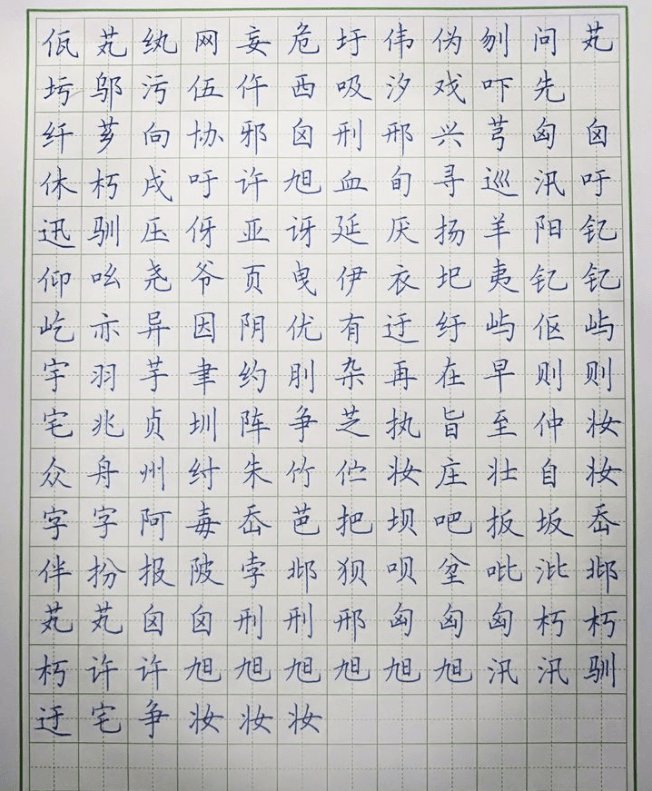 佤芄纨网妄危圩伟伪刎问芄
圬邬污伍仵西吸汐戏吓先
纤芗向协邪囟刑邢兴芎匈囟
休朽戌吁许旭血旬寻巡汛吁
迅驯压伢亚讶延厌扬羊阳钇
仰吆尧爷页曳伊衣圯夷钇钇
屹亦异因阴优有迂纡屿伛屿
宇羽芋聿约刖杂再在早则则
宅兆贞圳阵争芝执旨至仲妆
众舟州纣朱竹伫妆庄壮自妆
字字阿毒岙芭把坝吧扳坂岙
伴扮报陂孛邶狈呗坌吡沘邶
芄芄囟囟刑刑邢匈匈匈朽朽
朽许许旭旭旭旭旭旭汛汛驯
迂宅争妆妆妆